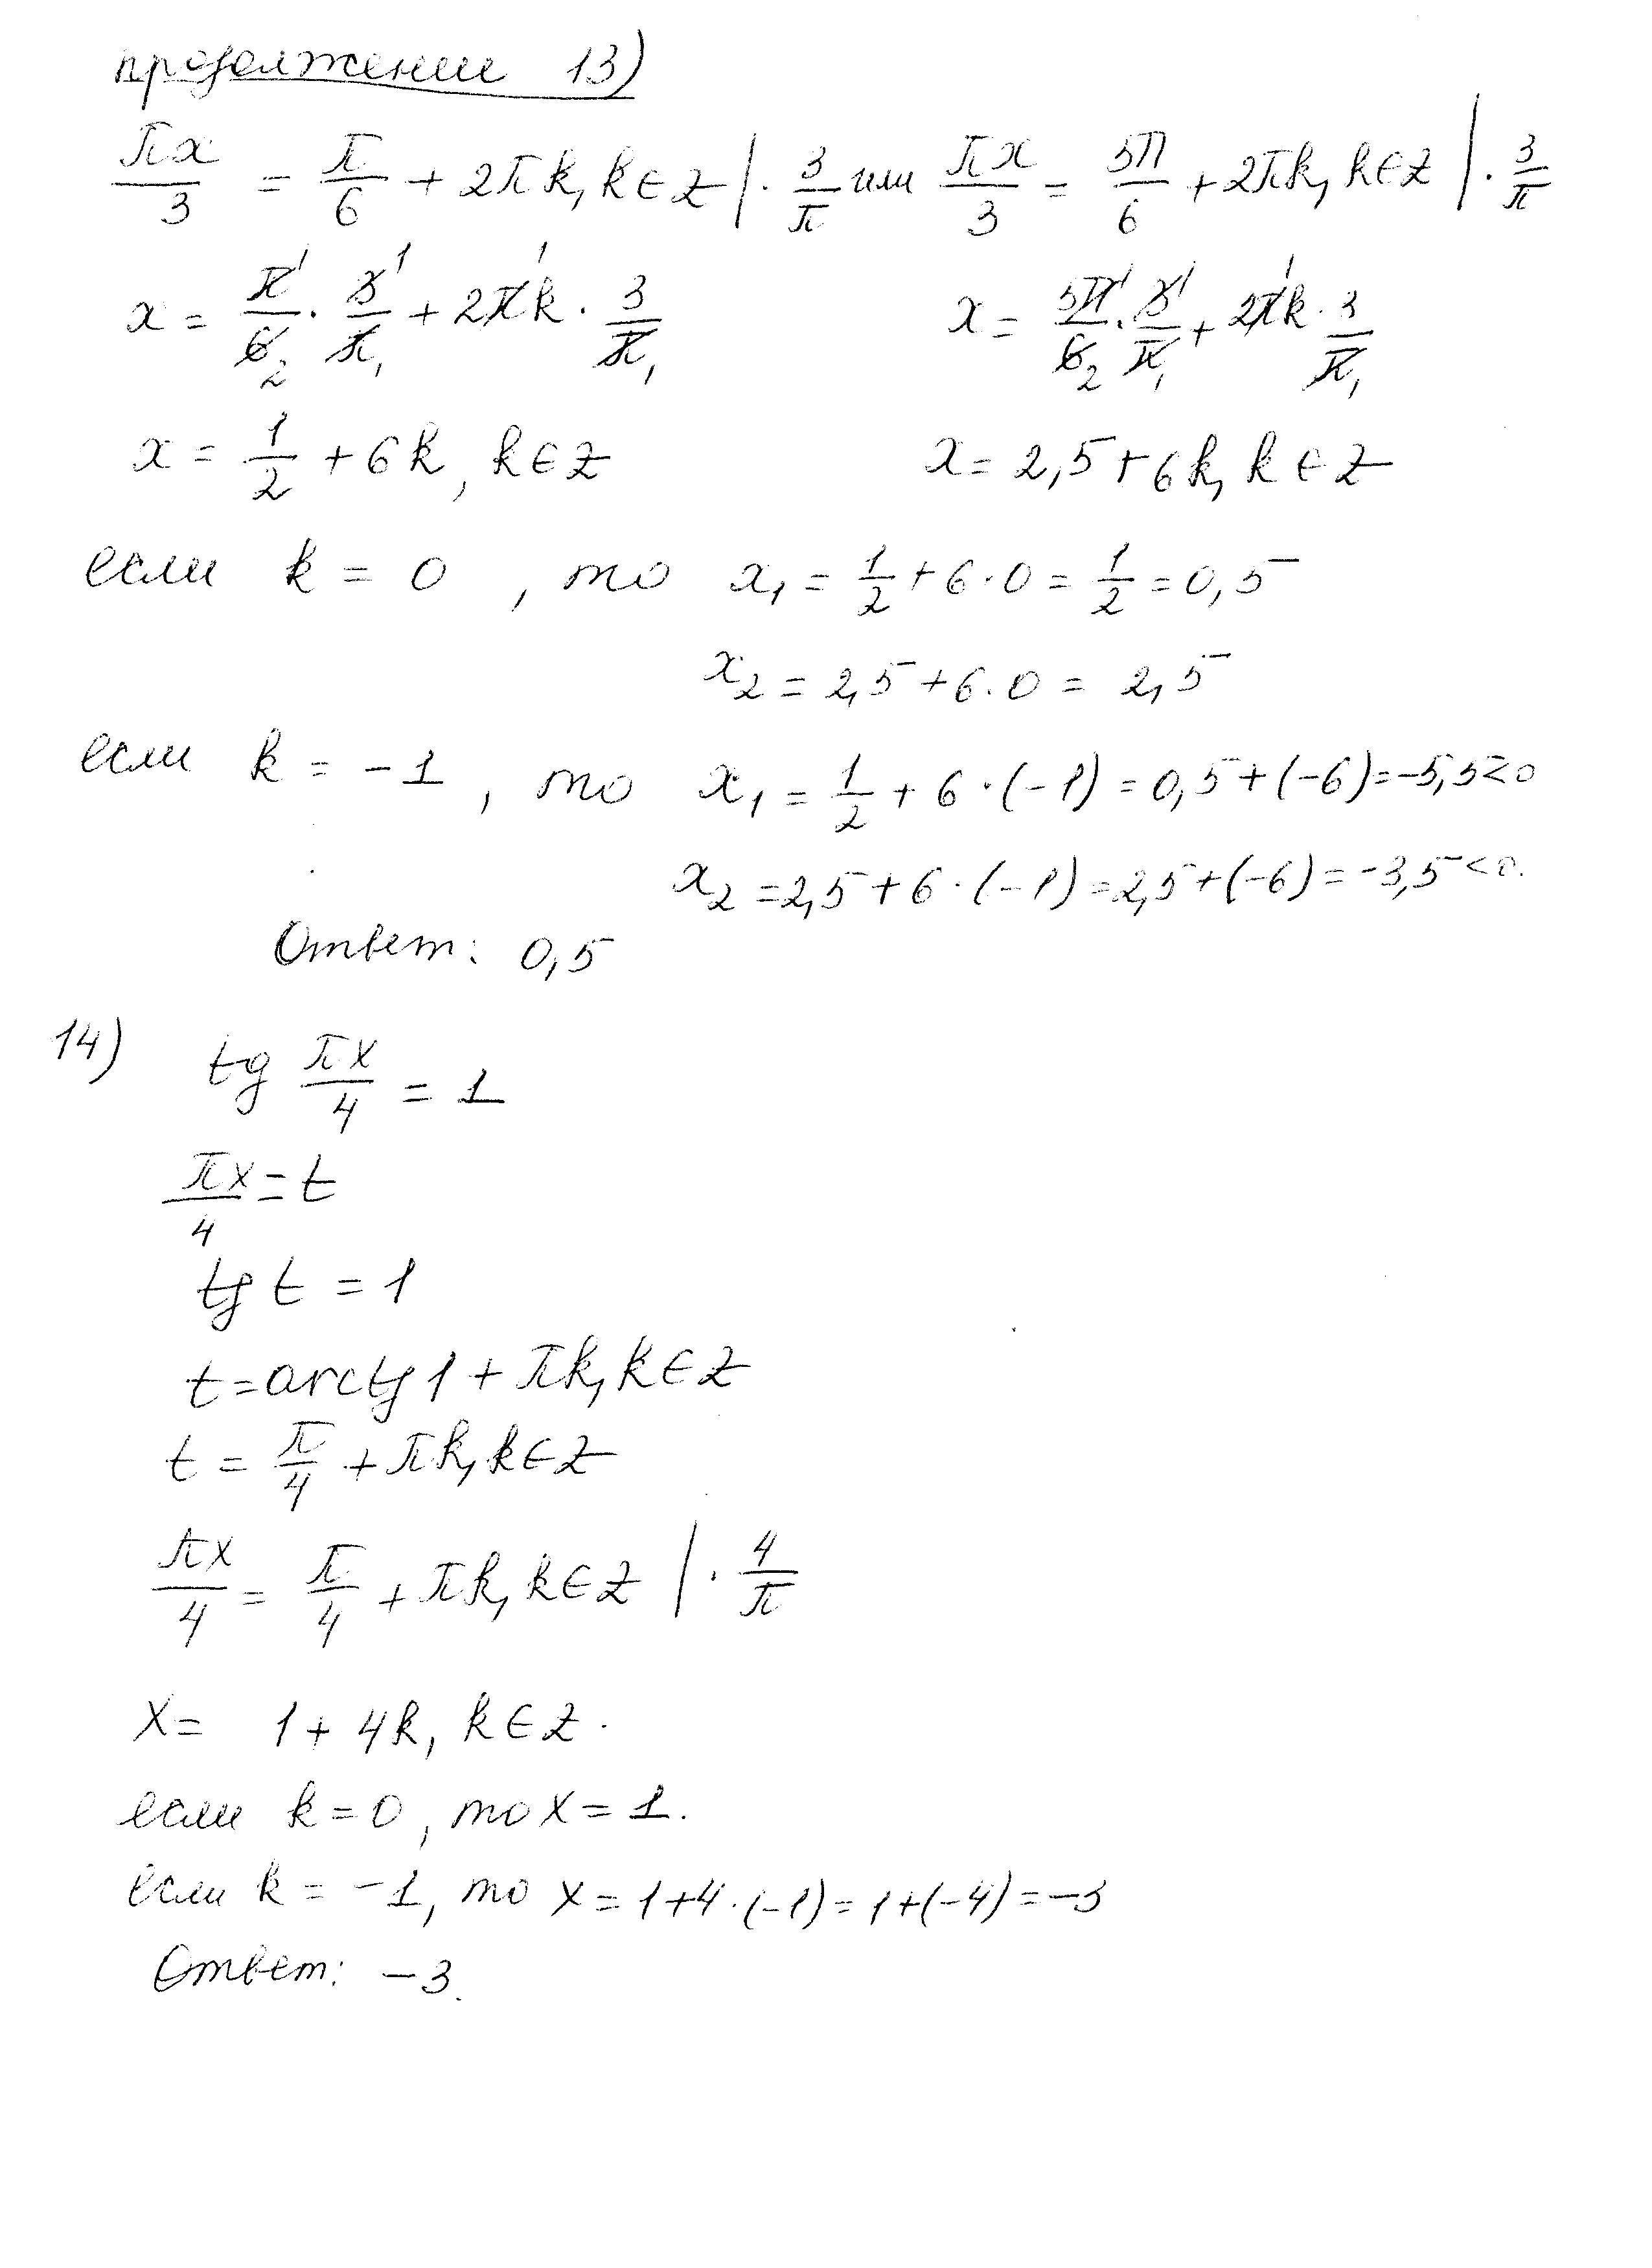 продолжение 13)
πx/3 = π/6 + 2πk, k∈Z | · 3/π или πx/3 = 5π/6 + 2πk, k∈Z | · 3/π
x = π¹/6₂ · 3¹/π₁ + 2π¹k · 3/π₁ x = 5π¹/6₂ · 3¹/π₁ + 2π¹k · 3/π₁
x = 1/2 + 6k, k∈Z x = 2,5 + 6k, k∈Z
если k = 0, то x₁ = 1/2 + 6·0 = 1/2 = 0,5
x₂ = 2,5 + 6·0 = 2,5
если k = -1, то x₁ = 1/2 + 6·(-1) = 0,5 + (-6) = -5,5 < 0
x₂ = 2,5 + 6·(-1) = 2,5 + (-6) = -3,5 < 0.
Ответ: 0,5
14) tg πx/4 = 1
πx/4 = t
tg t = 1
t = arctg 1 + πk, k∈Z
t = π/4 + πk, k∈Z
πx/4 = π/4 + πk, k∈Z | · 4/π
x = 1 + 4k, k∈Z.
если k = 0, то x = 1.
если k = -1, то x = 1 + 4·(-1) = 1 + (-4) = -3
Ответ: -3.